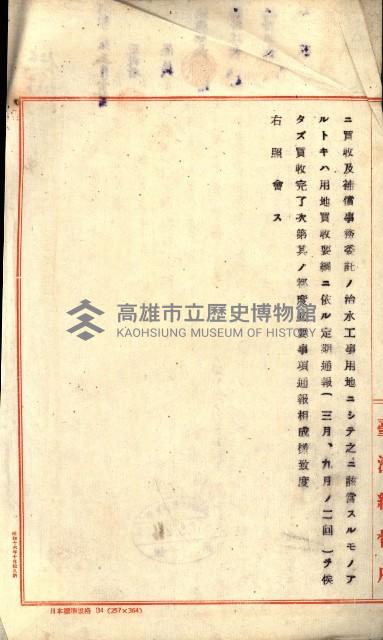 ニ買收及補償事務委託ノ治水工事用地ニシテ之ニ該當スルモノア
ルトキハ用地買收要綱ニ依ル定期通報(三月、九月ノ二回)ヲ俟
タズ買收完了次第其ノ都度必要事項通報相成樣致度
右照會ス
臺灣總督府
高雄市立歷史博物館
KAOHSIUNG MUSEUM OF HISTORY
日本標準規格 B4 (257×364)